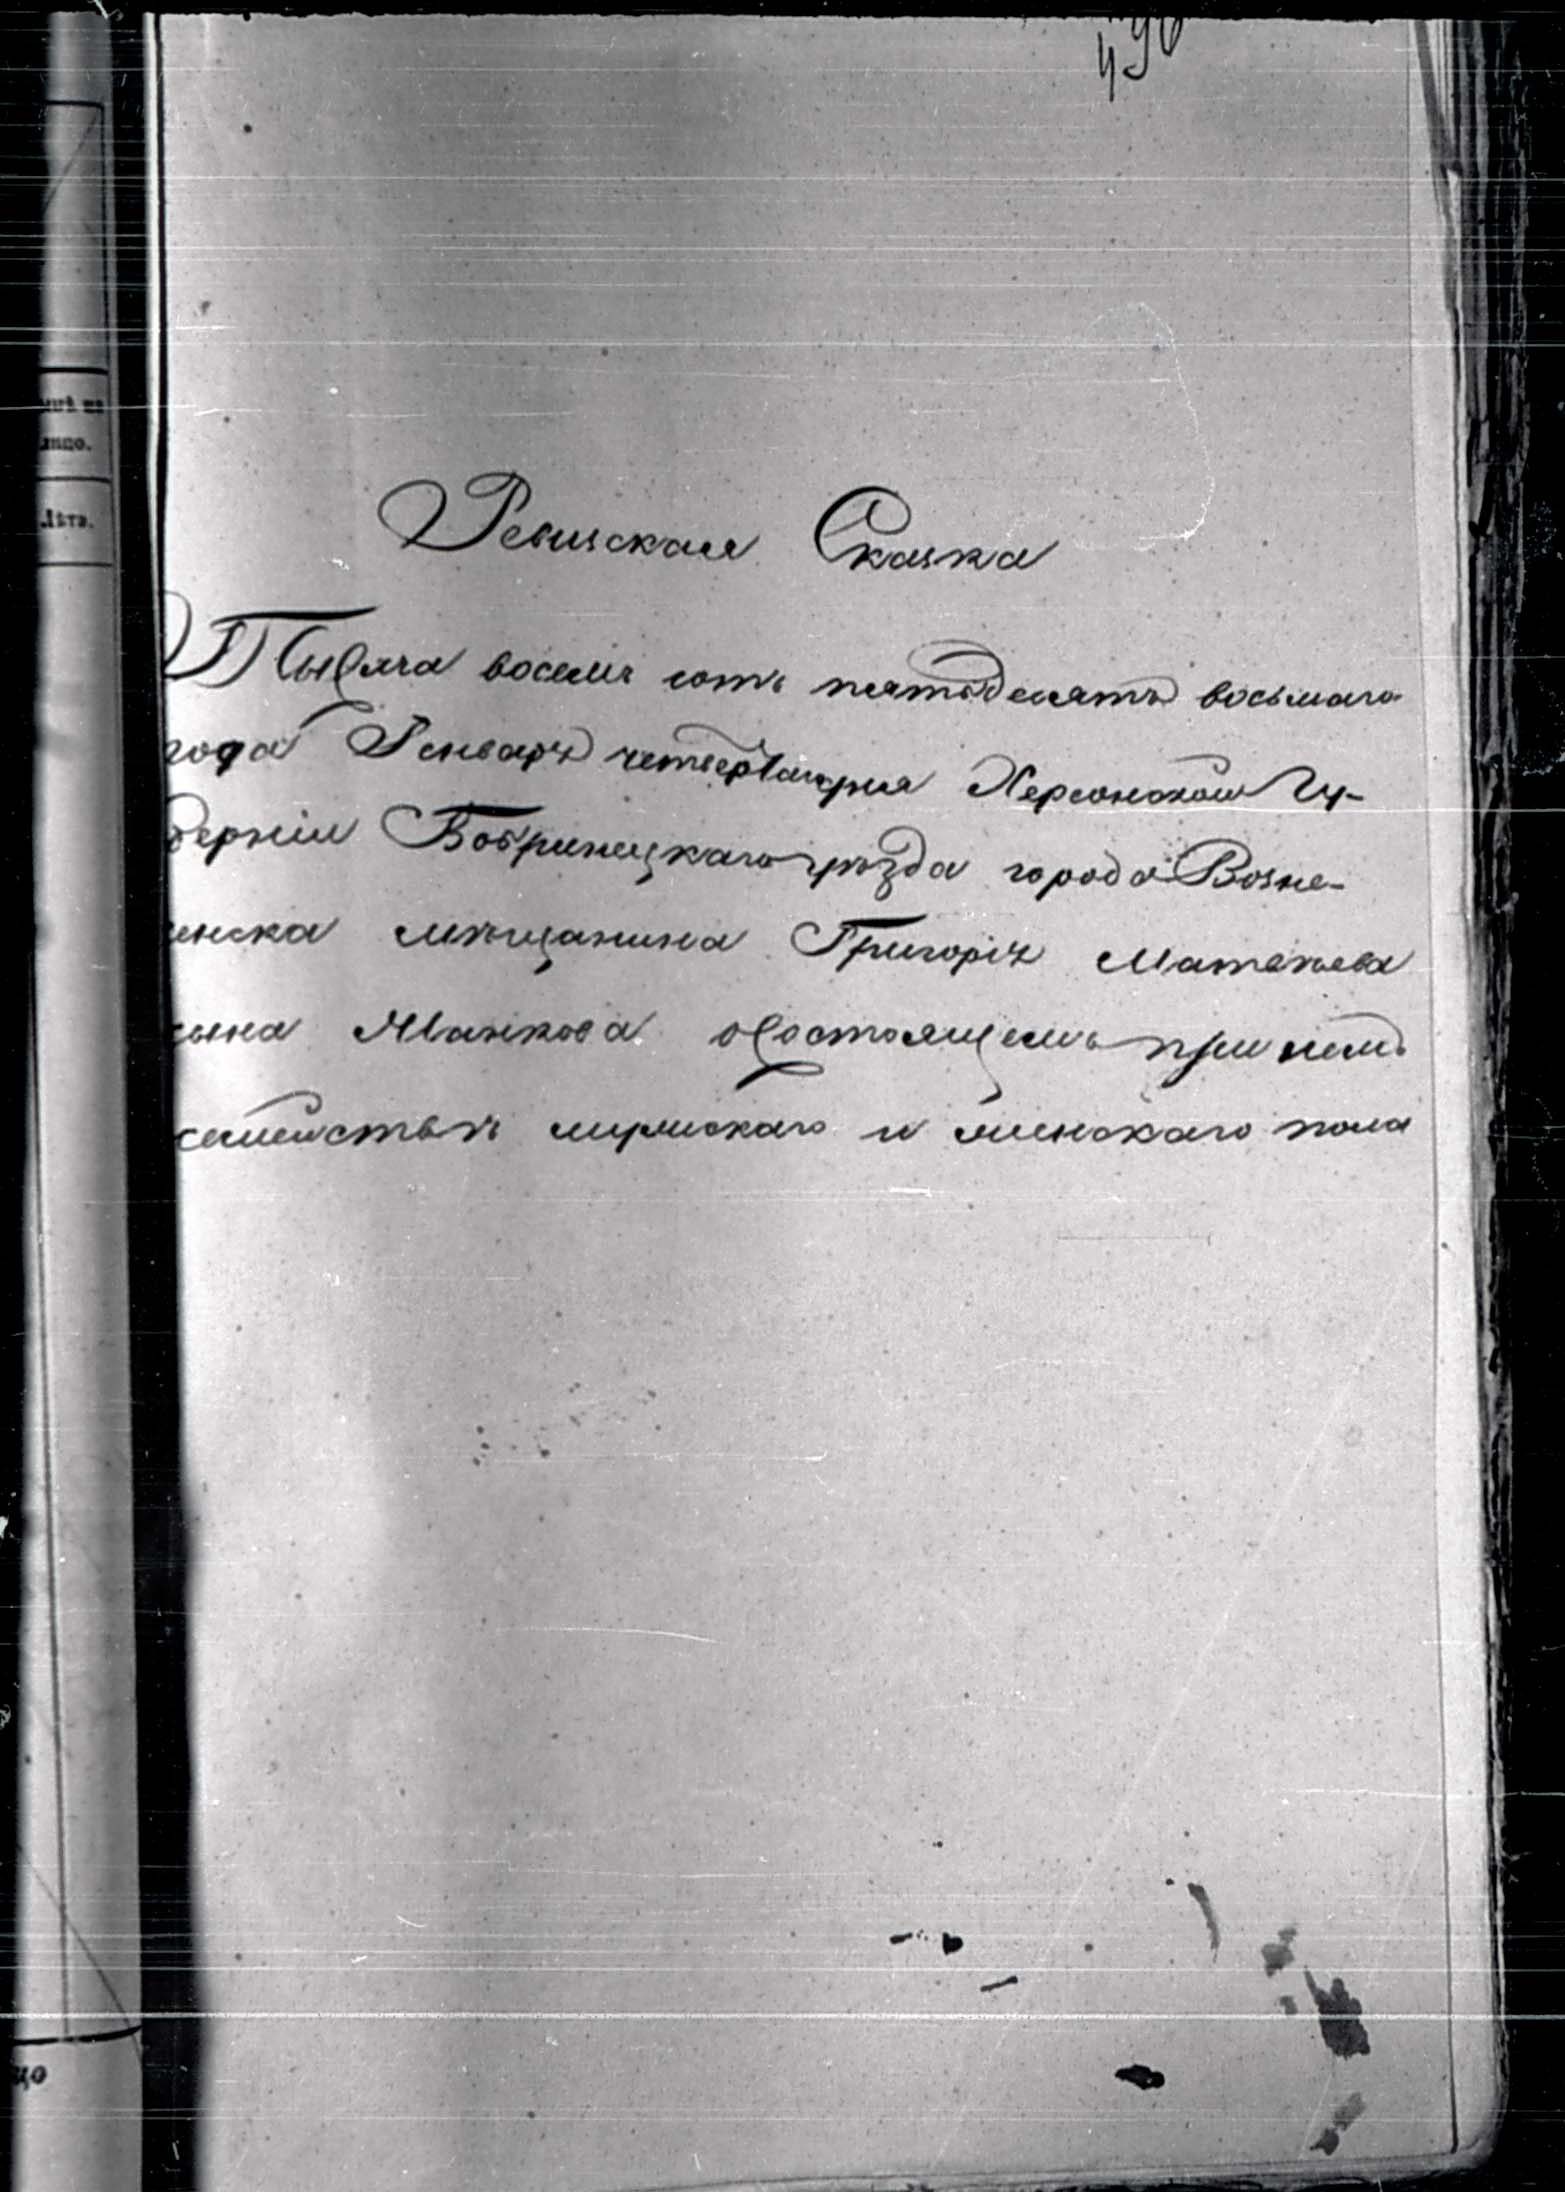 496
лицо.
Лѣтъ.
Ревизская Сказка
Тысяча восемь сотъ пятьдесятъ восьмаго
года Генваря четвертагодня Херсонской Гу-
берніи Бобринецкаго уѣзда города Возне-
сенска мѣщанина Григорія Матвѣева
сына Манкова о состоящемъ при немъ
семействѣ мужскаго и женскаго пола
цо